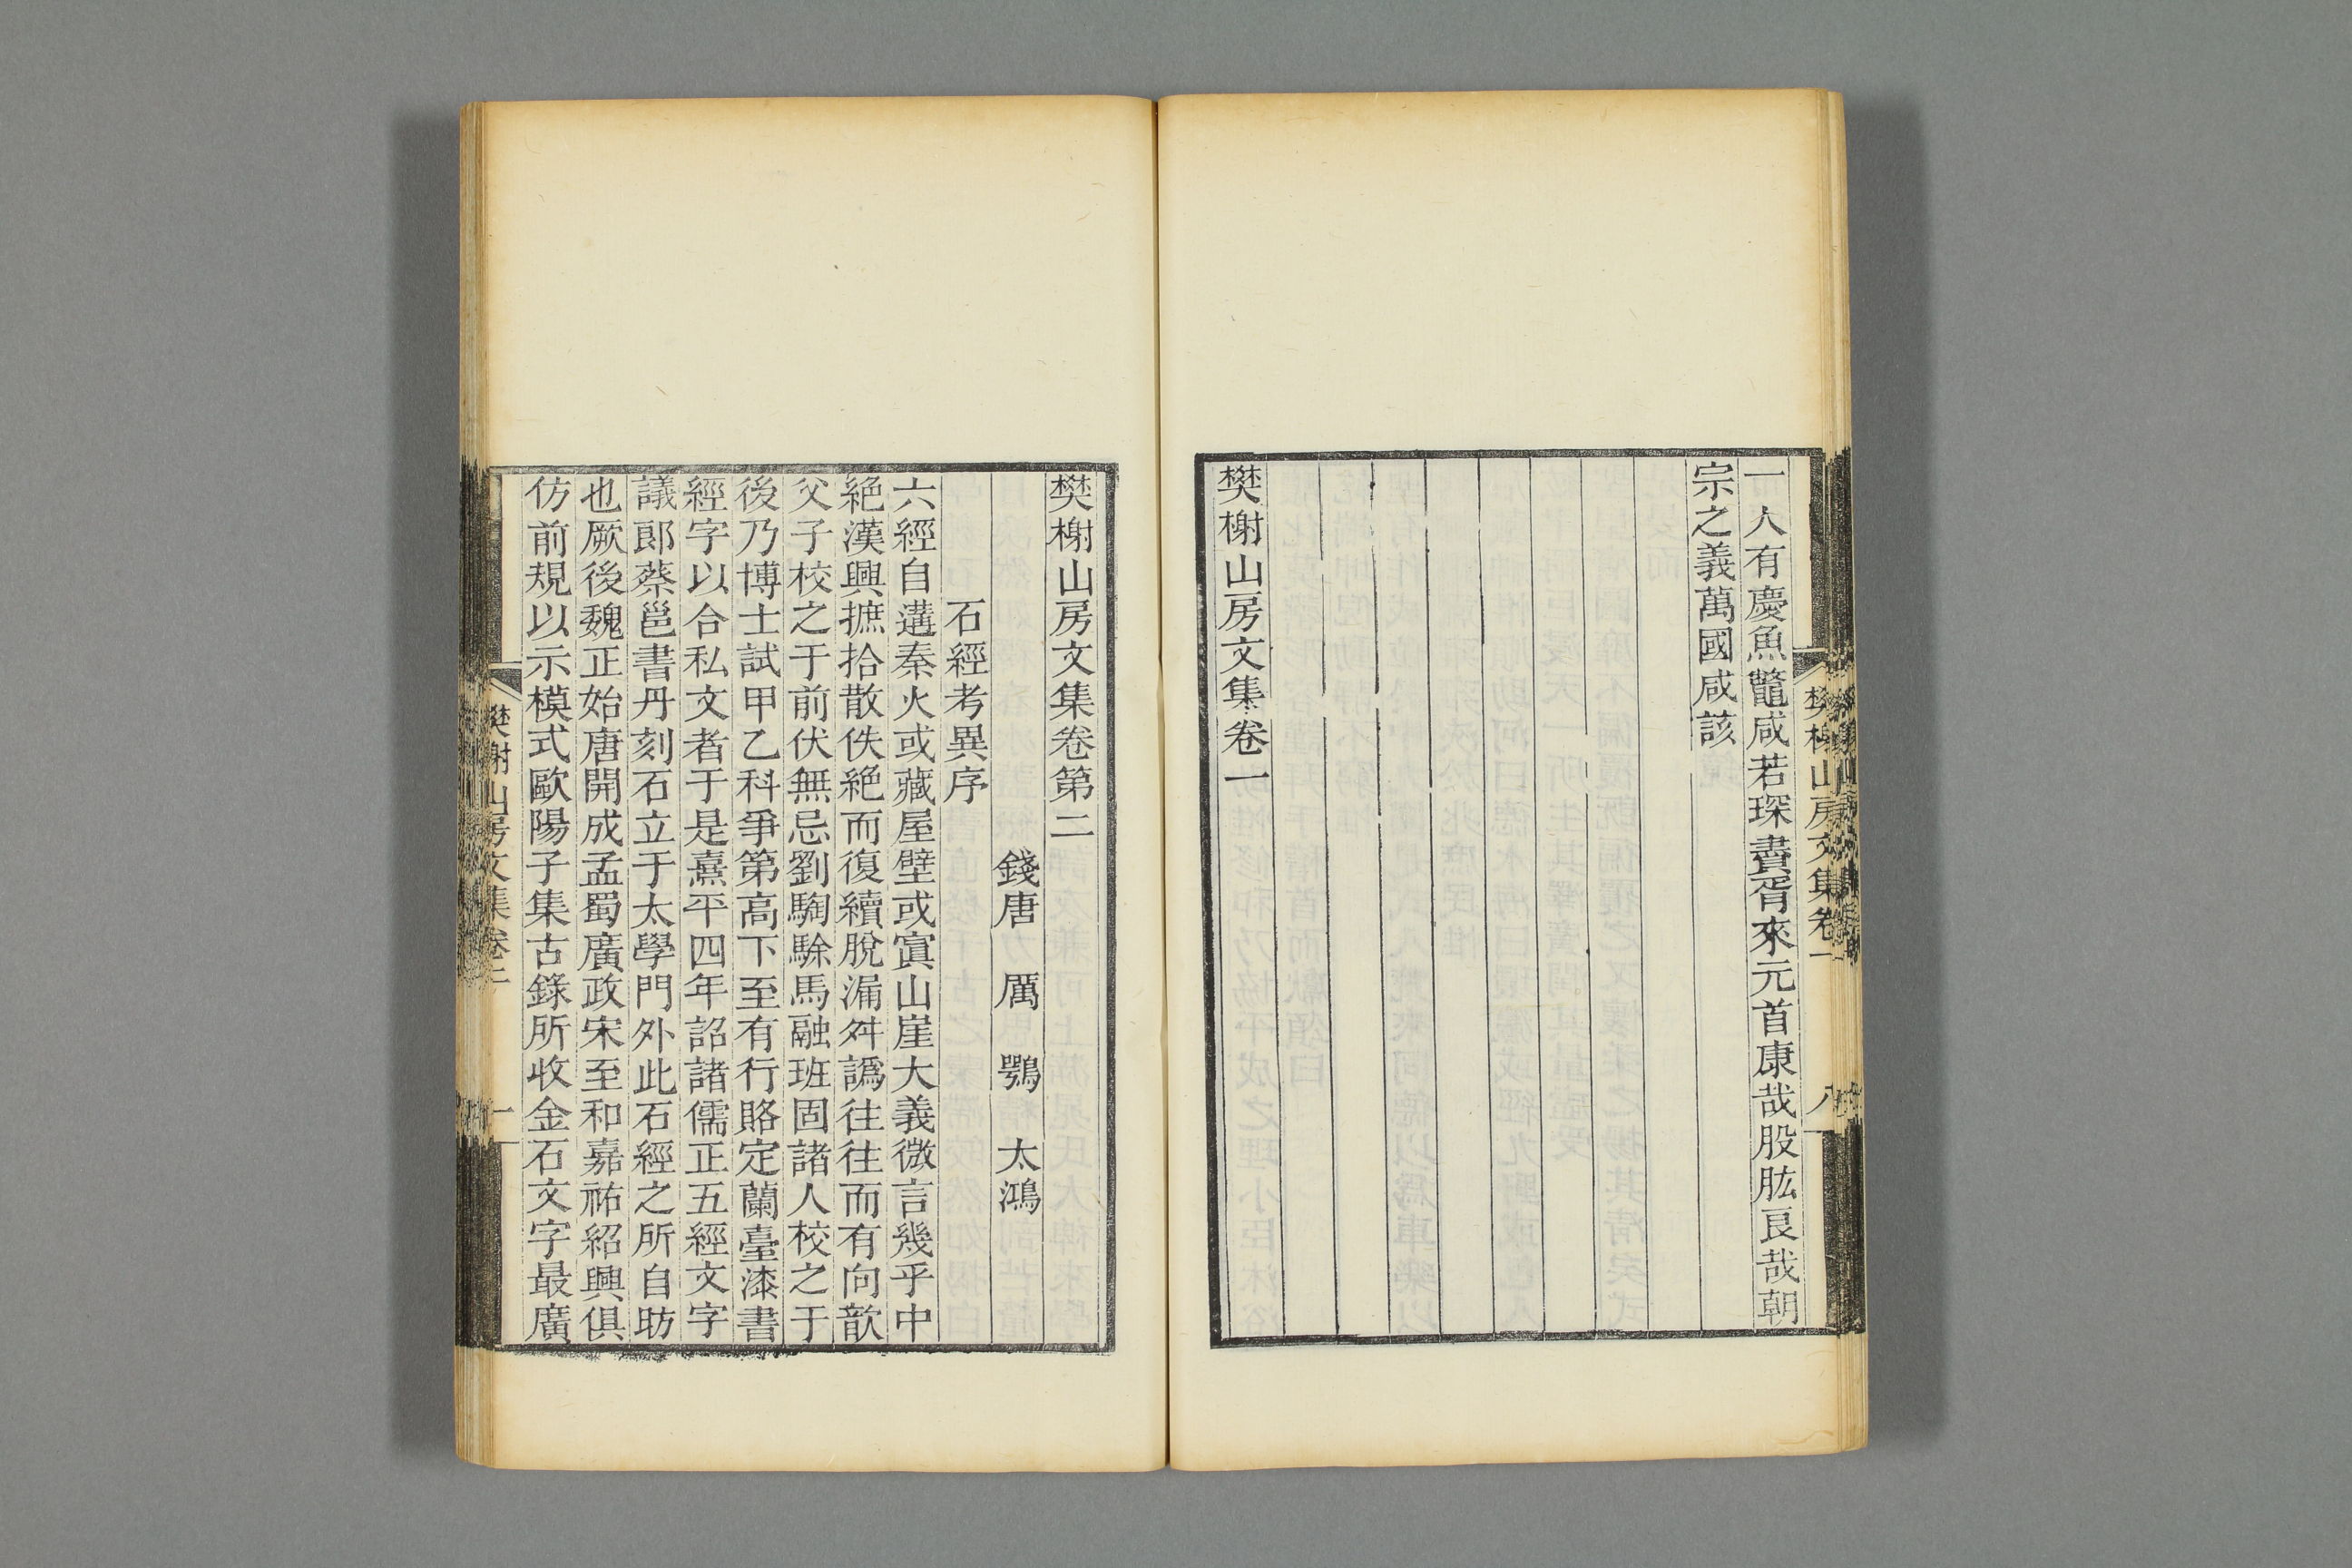 一人有慶魚鼈咸若琛賮胥來元首康哉股肱良哉朝
宗之義萬國咸該
樊榭山房文集卷一
樊榭山房文集卷一
八
樊榭山房文集卷第二
錢唐 厲 鶚 太鴻
石經考異序
六經自遘秦火或藏屋壁或窴山崖大義微言幾乎中
絕漢興摭拾散佚絕而復續脫漏舛譌往往而有向歆
父子校之于前伏無忌劉騊駼馬融班固諸人校之于
後乃博士試甲乙科爭第高下至有行賂定蘭臺漆書
經字以合私文者于是熹平四年詔諸儒正五經文字
議郎蔡邕書丹刻石立于太學門外此石經之所自昉
也厥後魏正始唐開成孟蜀廣政宋至和嘉祐紹興俱
仿前規以示模式歐陽子集古錄所收金石文字最廣
樊榭山房文集卷二
一